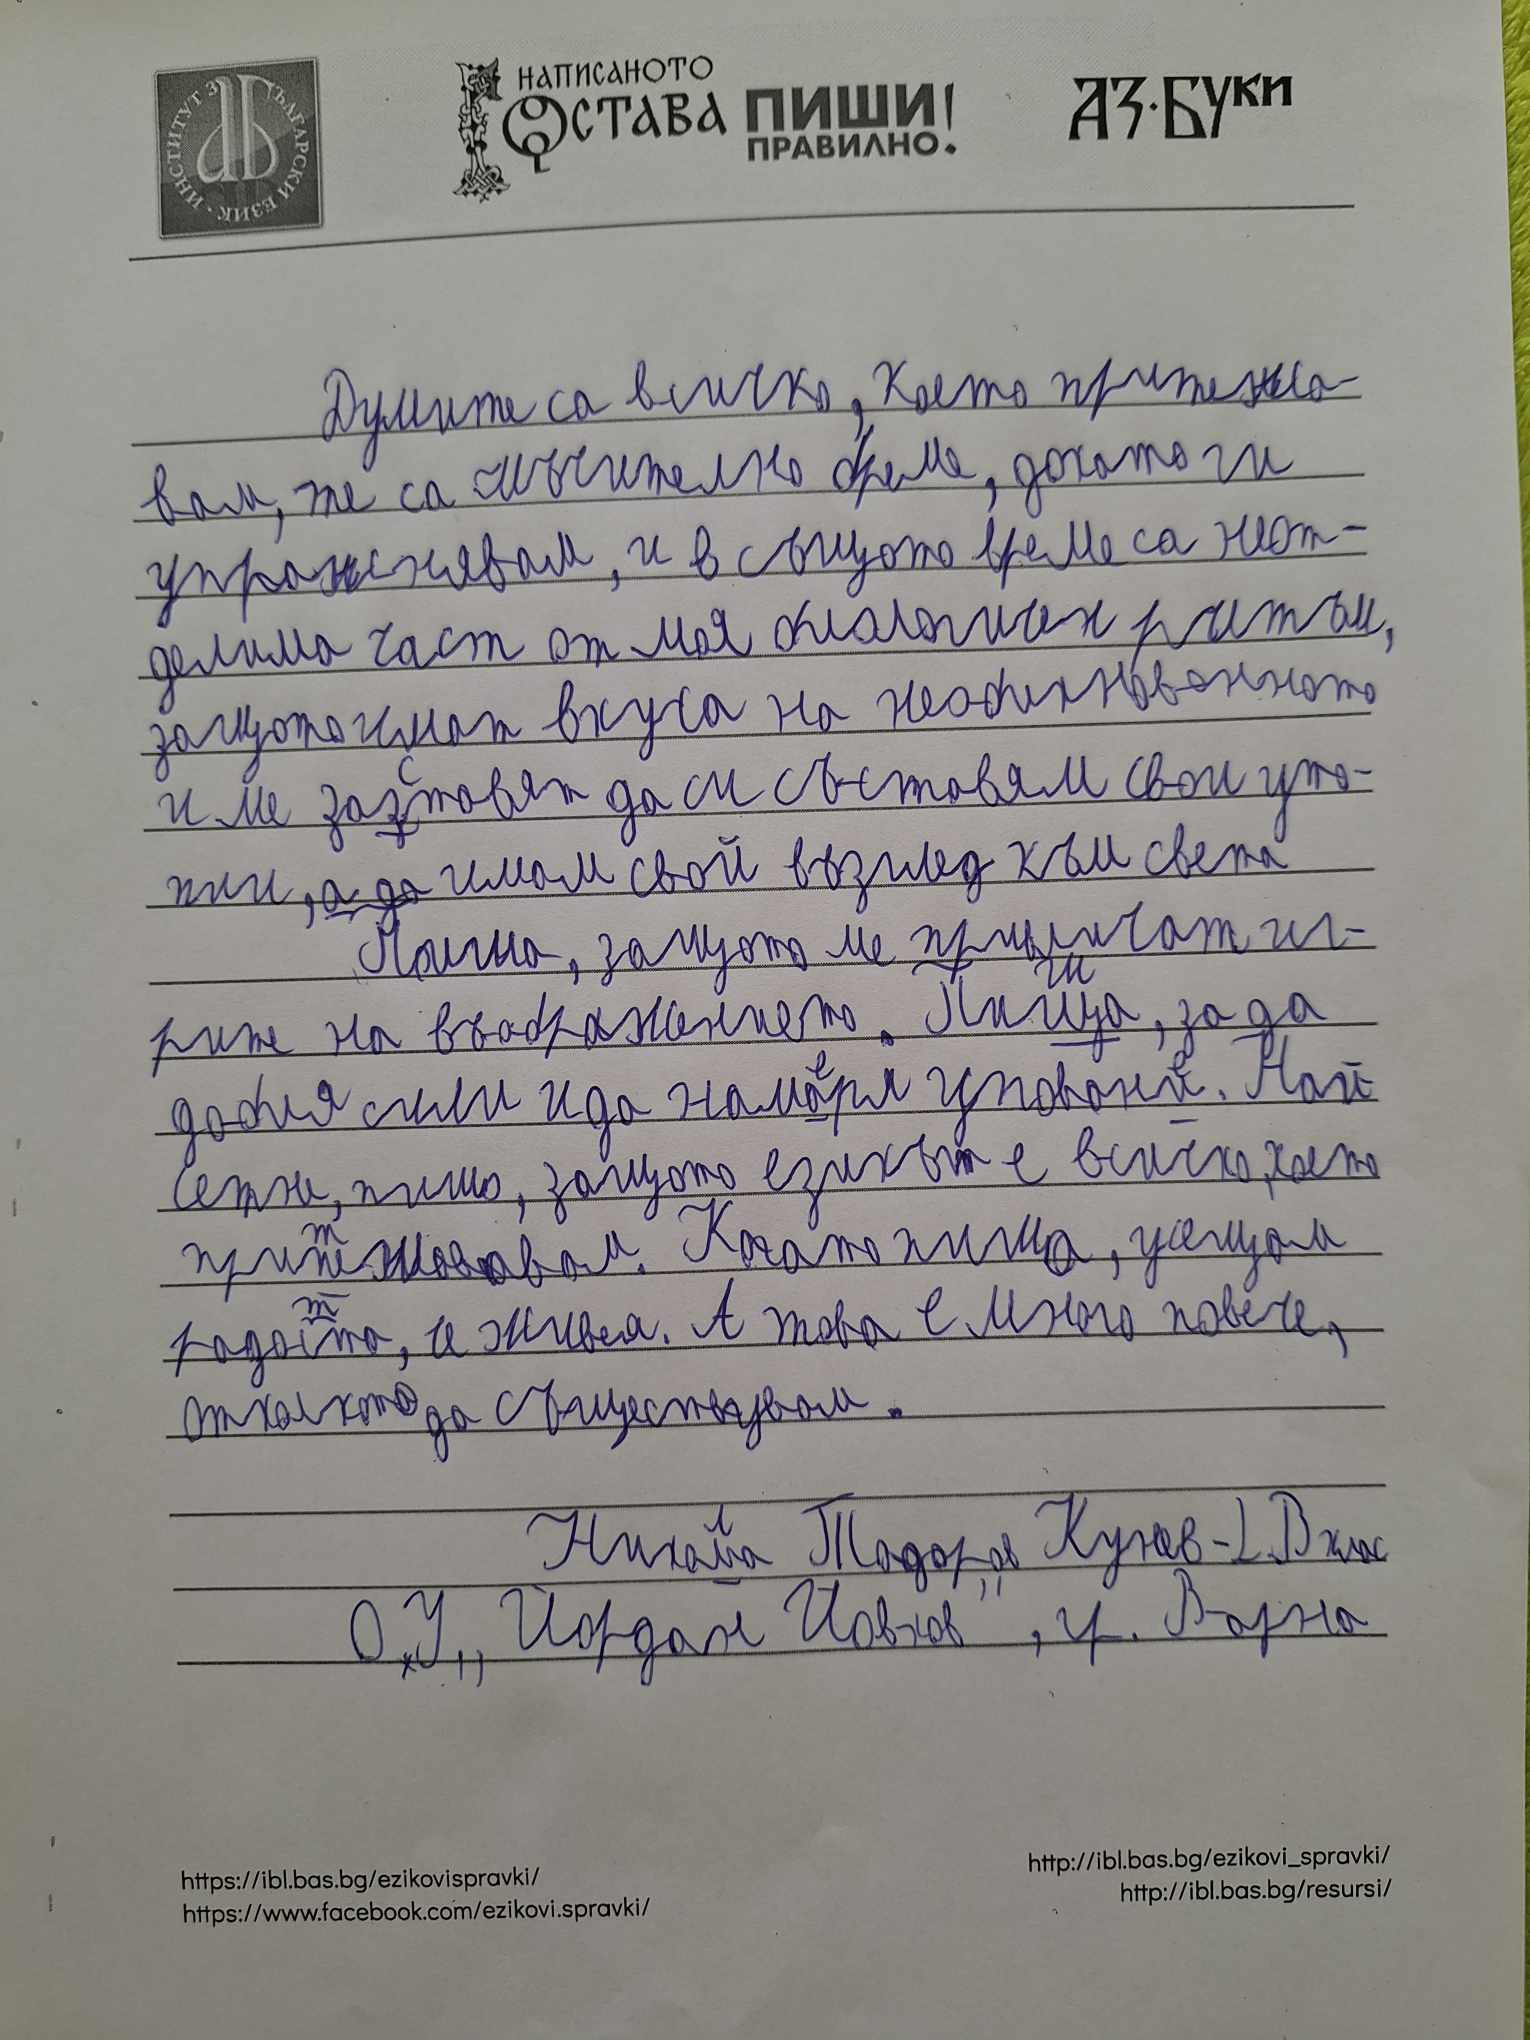 ИНСТИТУТ ЗА БЪЛГАРСКИ ЕЗИК
НАПИСАНОТО ОСТАВА
ПИШИ ПРАВИЛНО!
АЗ·БУКИ
Думите са всичко, което притежа-
вам, те са мъчително бреме, докато ги
упражнявам, и в същото време са неот-
делима част от моя биологичен ритъм,
защото имат вкуса на необикновеното
и ме заставят да си съставям свои уто-
пии, а да имам свой възглед към света
Пиша, защото ме привличат иг-
рите на въображението. Пиша, за да
добия сили и да намеря упование. Най-
сетне, пиша, защото езикът е всичко, което
притежавам. Когато пиша, усещам
радостта, че живея. А това е много повече,
отколкото да съществувам.
Тодоров Кунев - 2. В клас
О.У „Йордан Йовков", гр. Варна
https://ibl.bas.bg/ezikovispravki/
http://ibl.bas.bg/ezikovi_spravki/
https://www.facebook.com/ezikovi.spravki/
http://ibl.bas.bg/resursi/